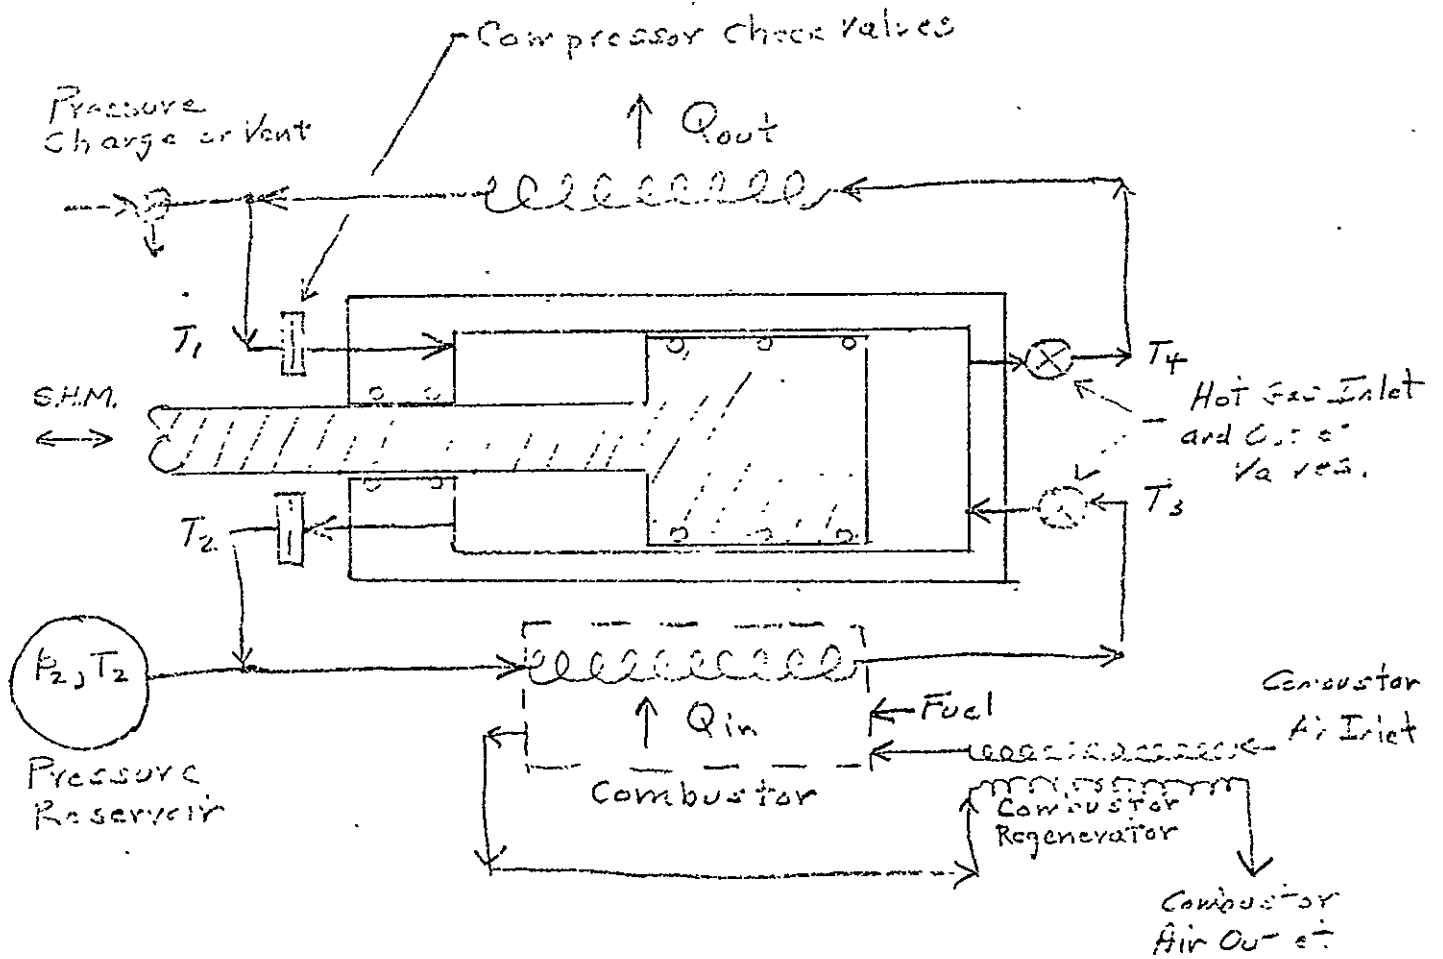 Compressor Check Valves
Pressure
Charge or Vent
Qout
T1
S.H.M.
T4
Hot Gas Inlet
and Outlet
Valves.
T2
T3
P2, T2
Pressure
Reservoir
Qin
Fuel
Combustor
Combustor
Air Inlet
Combustor
Regenerator
Combustor
Air Outlet